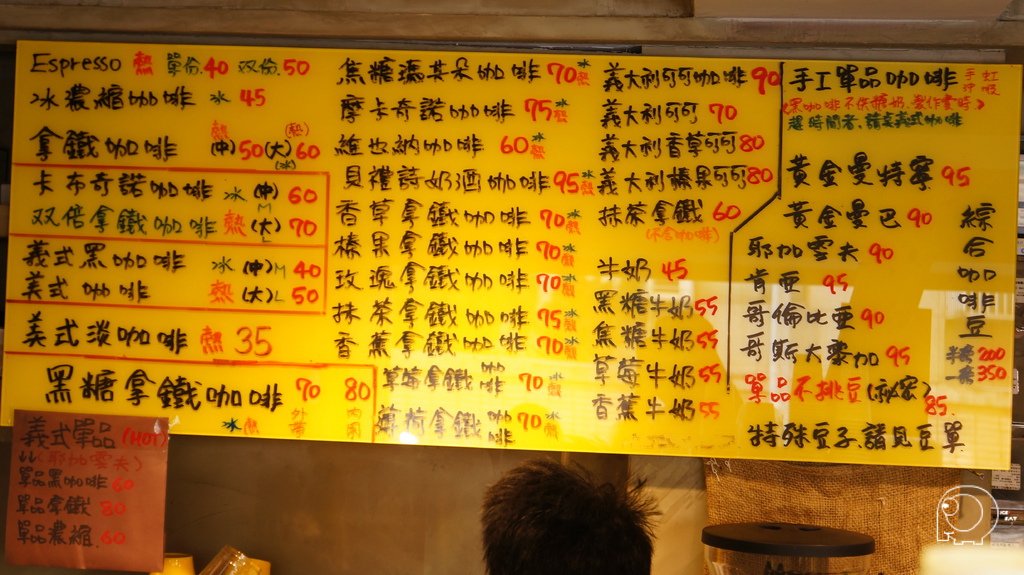 Espresso 熱 單份.40 双份.50
冰濃縮咖啡 冰 45
拿鐵咖啡 熱(中)50 (熱)(冰)(大)60
卡布奇諾咖啡 冰(中)M 60
双倍拿鐵咖啡 熱(大)L 70
義式黑咖啡 冰(中)M 40
美式 咖啡 熱(大)L 50
美式淡咖啡 熱 35
黑糖拿鐵咖啡 70 80
冰熱 外帶 內用
焦糖瑪其朵咖啡 70 冰熱
摩卡奇諾咖啡 75 冰熱
維也納咖啡 60 冰熱
貝禮詩奶酒咖啡 95 冰熱
香草拿鐵咖啡 70 冰熱
榛果拿鐵咖啡 70 冰熱
玫瑰拿鐵咖啡 70 冰熱
抹茶拿鐵咖啡 75 冰熱
香蕉拿鐵咖啡 70 冰熱
草莓拿鐵咖啡 70 冰熱
薄荷拿鐵咖啡 70 冰熱
義大利可可咖啡 90
義大利可可 70
義大利香草可可80
義大利榛果可可80
抹茶拿鐵 60
(不含咖啡)
牛奶 45
黑糖牛奶55
焦糖牛奶55
草莓牛奶55
香蕉牛奶55
手工單品咖啡 手沖 虹吸
黑咖啡不供糖奶.製作費時
趕時間者.請點義式咖啡
黃金曼特寧 95
黃金曼巴 90
耶加雪夫 90
肯亞 95
哥倫比亞 90
哥斯大黎加 95
單品不挑豆(秘密) 85.
特殊豆子.請見豆單
綜合咖啡豆
半磅200
一磅350
義式單品(HOT)
(耶加雪夫)
單品黑咖啡 60
單品拿鐵 80
單品濃縮.60
ICE EAT